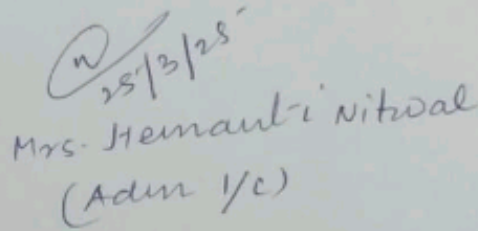 25/3/25
Mrs. Hemant-i Nitwal
(Admn I/C)